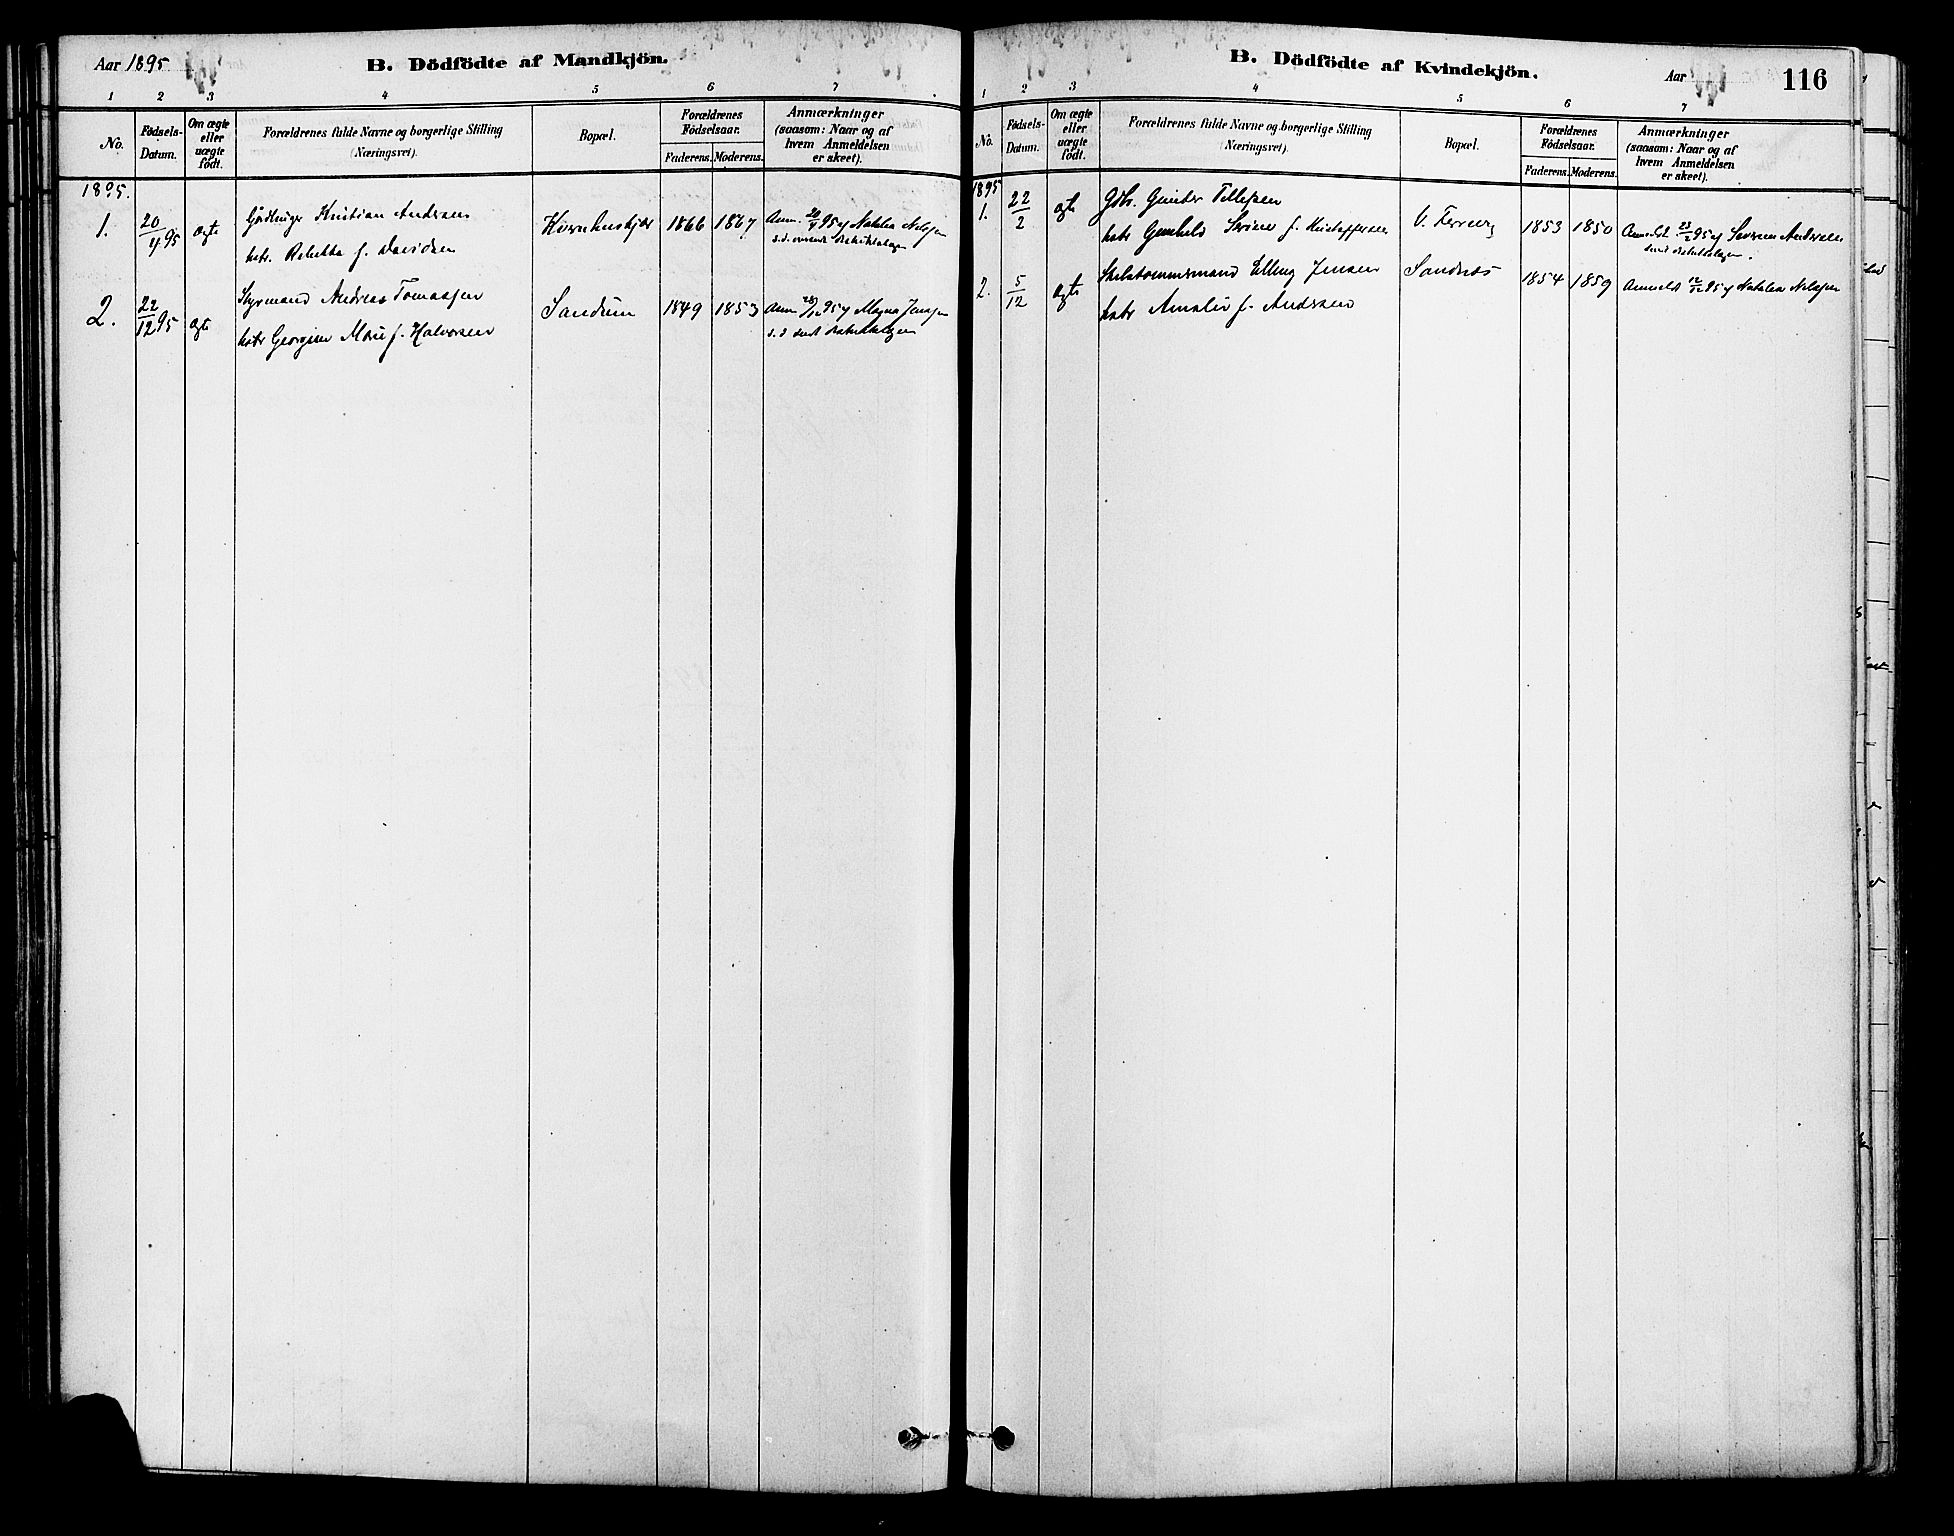 Aar 1895
B. Dödfödte af Mandkjön.
1 2 3 4 5 6 7
No.
Födsels-
Datum.
Om ægte
eller
uægte
födt.
Forældrenes fulde Navne og borgerlige Stilling
(Næringsvei).
Bopæl.
Forældrenes
Födselsaar.
Faderens. Moderens.
Anmærkninger
(saasom: Naar og af
hvem Anmeldelsen
er skeet).
1895.
1. 20/4 95 ægte Kristian Andersen Kvernhuskjær 1866 1867 Anm. 20/4 95 af Natalia Nilsen
hstr. Rebekka f. Davidsen
2. 22/12 95 ægte Styrmand Andreas Tomassen Sandum 1849 1853 Anm 95 af Magna Jensen
hstr Georgine Marie f. Halvorsen
B. Dödfödte af Kvindekjön.
Aar
116
1 2 3 4 5 6 7
No.
Födsels-
Datum.
Om ægte
eller
uægte
födt.
Forældrenes fulde Navne og borgerlige Stilling
(Næringsvei).
Bopæl.
Forældrenes
Födselsaar.
Faderens. Moderens.
Anmærkninger
(saasom: Naar og af
hvem Anmeldelsen
er skeet).
1895
1. 22/2 ægte Gdbr. Gunder Tellefsen V. 1853 1850 Anmeldt 23/2 95 af Severine Andersen
hstr Gunhild f. Kristoffersen
2. 5/12 ægte Skibstømmermand Elling Jensen Sandnes 1854 1859 Anmeldt 12/12 95 af Natalia Nilsen
hstr Amalie f. Andersen